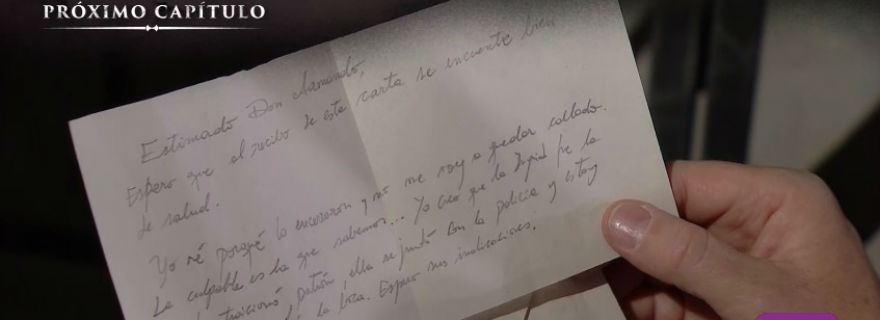 PRÓXIMO CAPÍTULO
Estimado Don Armando,
Espero que al recibo de esta carta se encuentre bien
de salud.
Yo sé porqué lo encerraron y no me voy a quedar callado.
La culpable es la que sabemos... Yo creo que la Ingrid fue la
traicionó patrón, ella se juntó con la policía y estoy
la loca. Espero sus indicaciones.